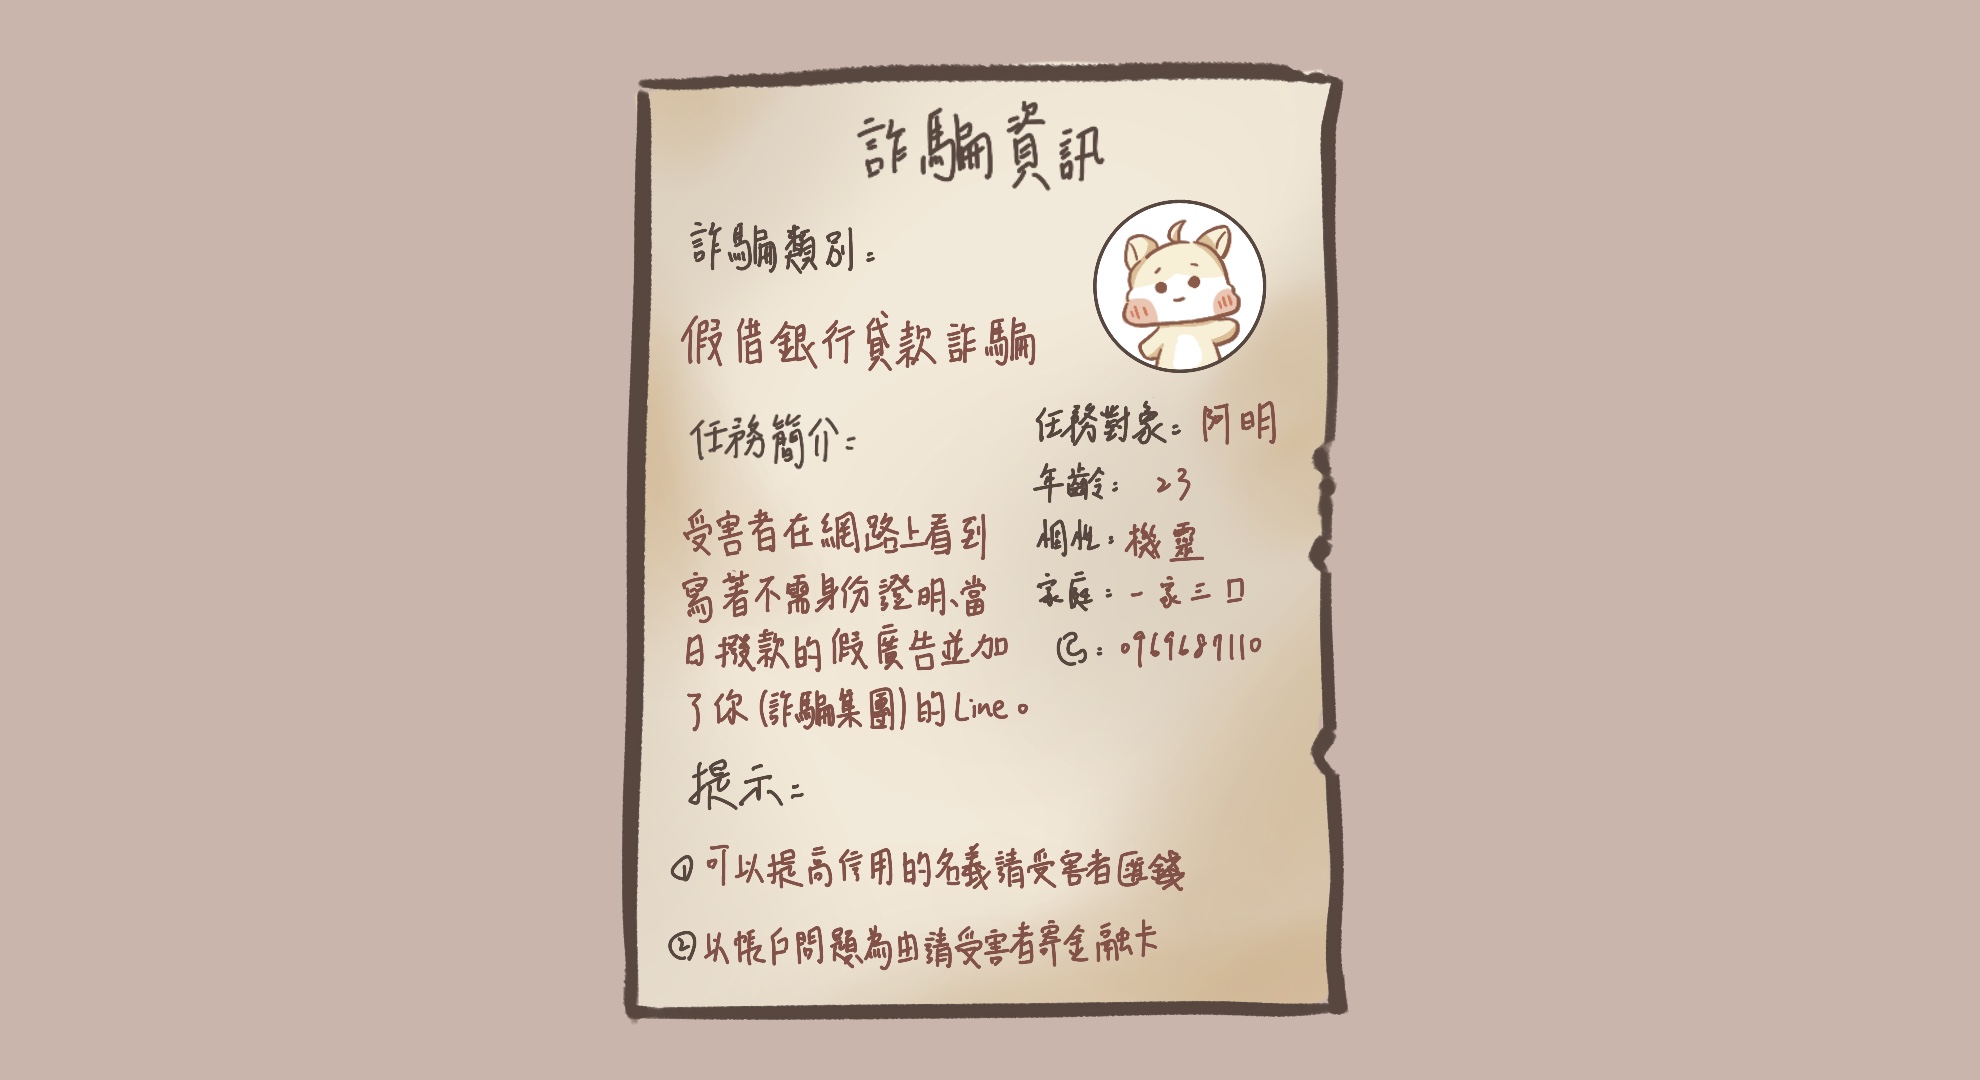 詐騙資訊
詐騙類別：
假借銀行貸款詐騙
任務簡介：
受害者在網路上看到
寫著不需身份證明、當
日撥款的假廣告並加
了你(詐騙集團)的Line。
任務對象：阿明
年齡：23
個性：機靈
家庭：一家三口
✆：0969687110
提示：
① 可以提高信用的名義請受害者匯錢
② 以帳戶問題為由請受害者寄金融卡